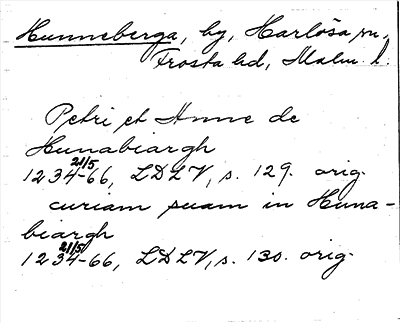 Hunneberga, by, Harlösa sn,
Frosta hd, Malm. l.
Petri et Anne de
Hunabiargh
1234 21/5 -66, LDLV, s. 129. orig.
curiam suam in Huna-
biargh
1234 21/5 -66, LDLV, s. 130. orig.